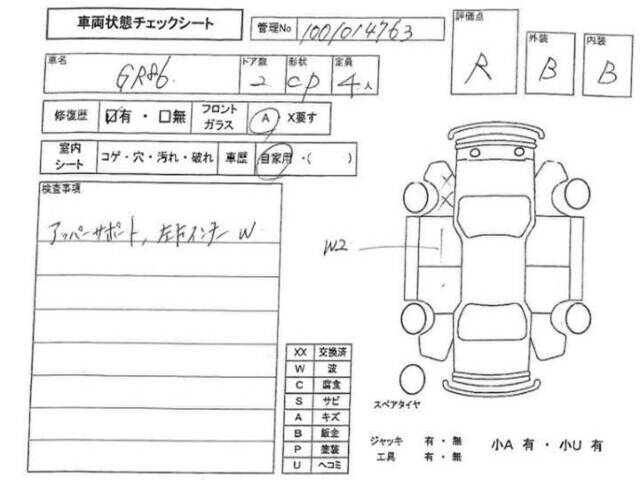 車両状態チェックシート
管理No 1001014763
評価点 R
外装 B
内装 B
車名 GR86
ドア数 2
形状 CP
定員 4人
修復歴 ☑有・□無
フロントガラス A・X要す
室内シート コゲ・穴・汚れ・破れ
車歴 自家用・( )
検査事項
アッパーサポート, 左右インナー W
W2
XX 交換済
W 波
C 腐食
S サビ
A キズ
B 鈑金
P 塗装
U ヘコミ
スペアタイヤ
ジャッキ 有・無
工具 有・無
小A 有・小U 有